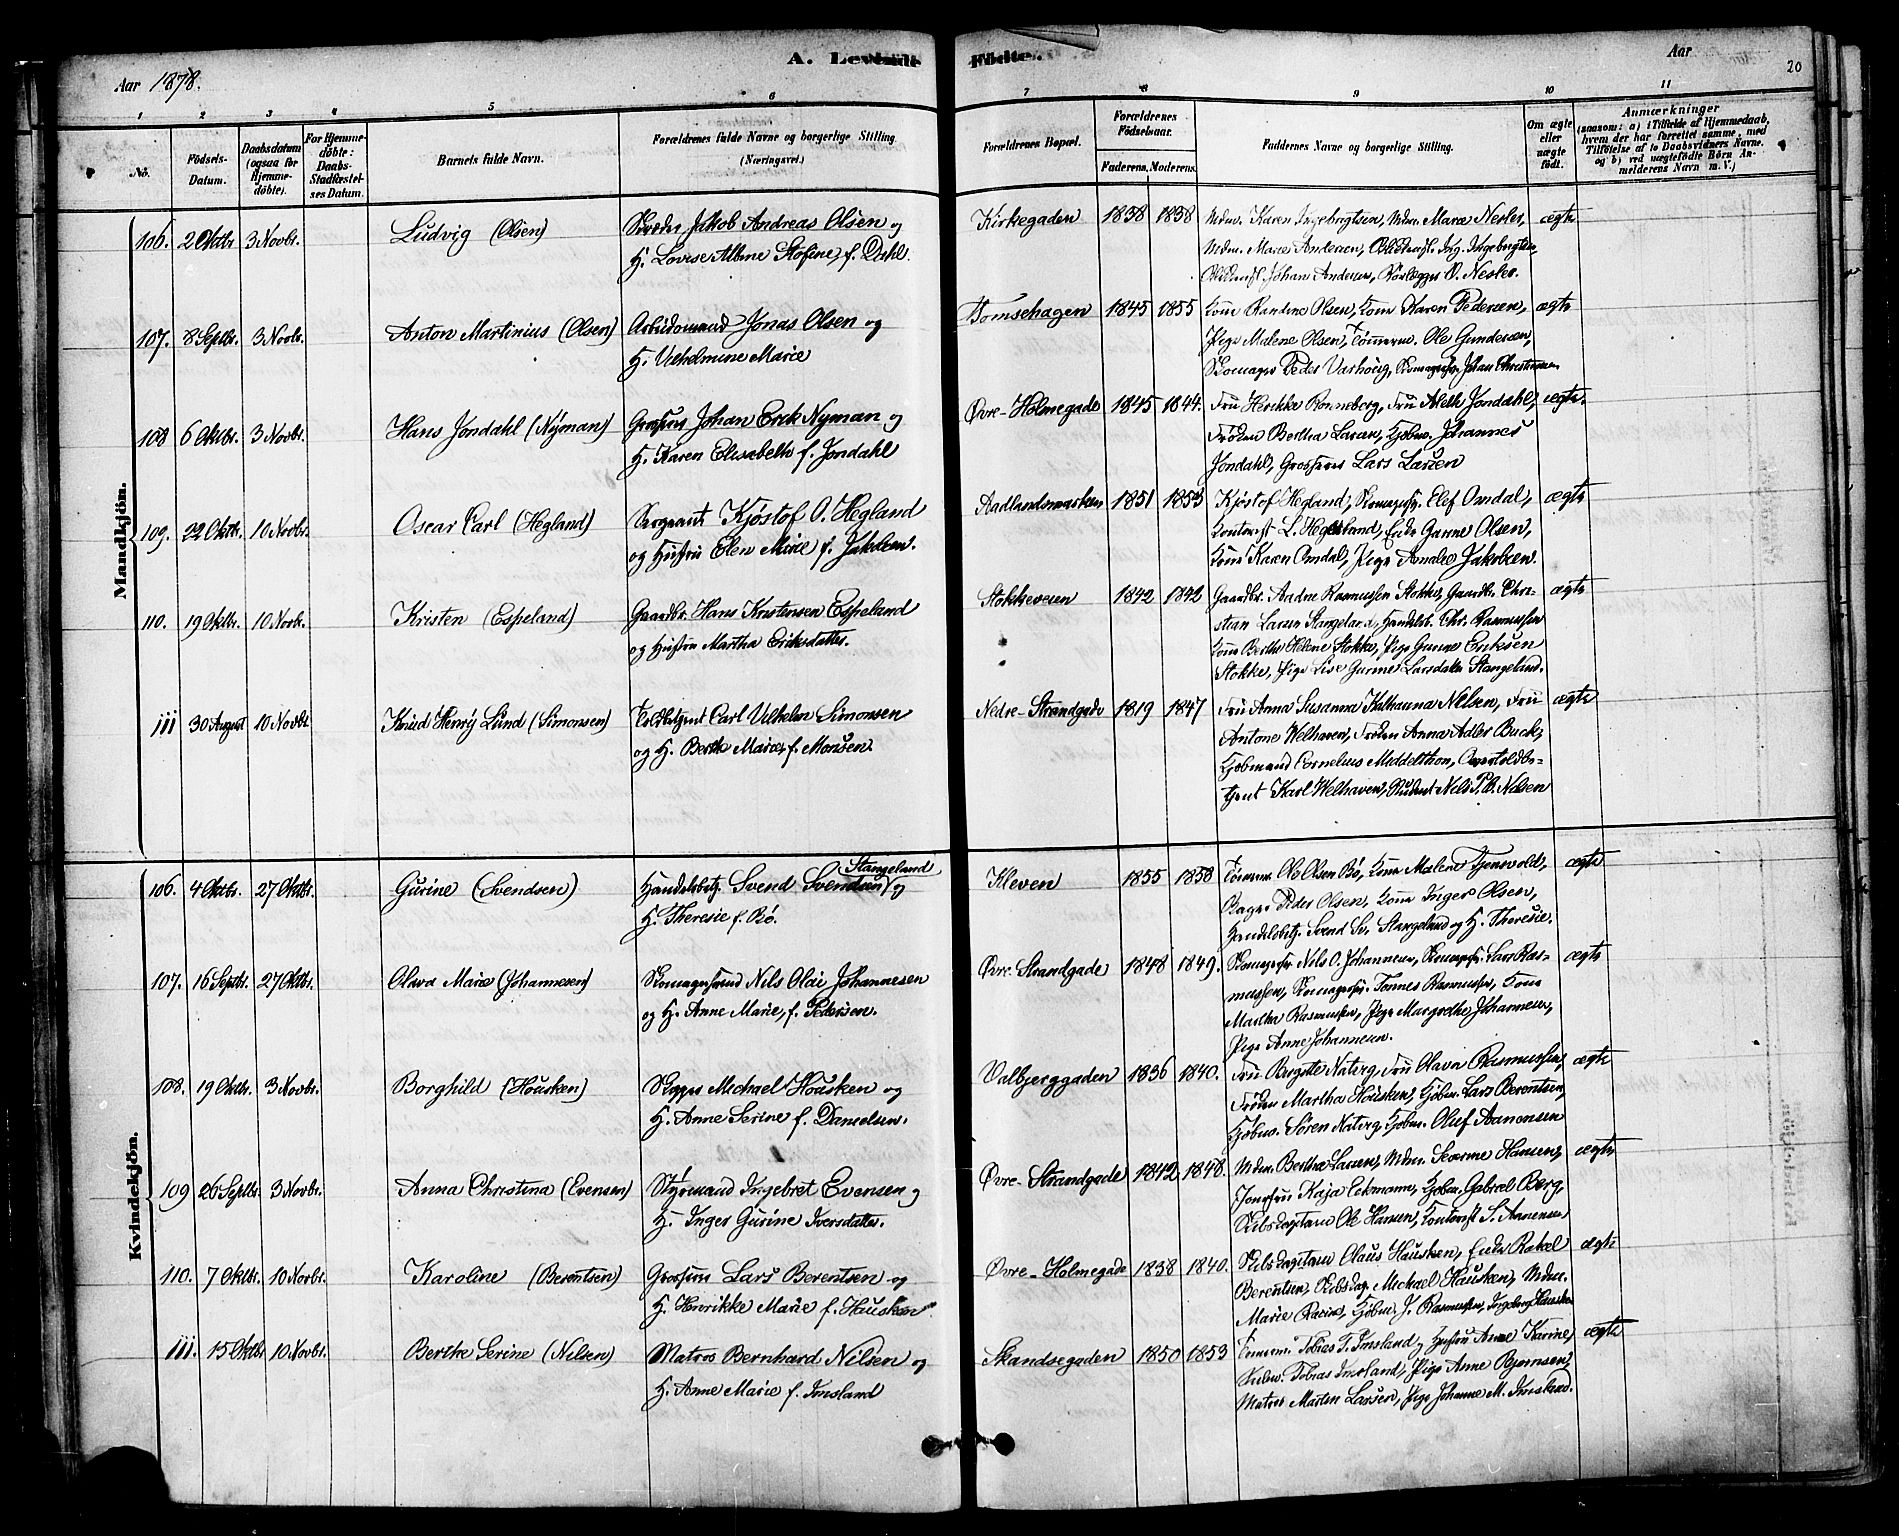 A. Levende Fødte.
Aar 1878.
Aar
20
1 2 3 4 5 6 7 8 9 10 11
No.
Fødsels-Datum.
Daabsdatum (ogsaa for Hjemmedøbte).
For Hjemmedøbte: Daabs Stadfæstelses Datum.
Barnets fulde Navn.
Forældrenes fulde Navne og borgerlige Stilling (Næringsvei.)
Forældrenes Bopæl.
Forældrenes Fødselsaar.
Faderens. Moderens.
Faddernes Navne og borgerlige Stilling.
Om ægte eller uægte født.
Anmærkninger
(saasom: a) i Tilfælde af Hjemmedaab, hvem der har forrettet samme, med Tilføielse af to Daabsvidners Navne. og b) ved uægtefødte Børn Anmelderens Navn m. V.)
Mandkjøn.
106. 2 Oktbr. 3 Novbr. Ludvig (Olsen) Jakob Andreas Olsen og Kirkegaden 1838 1838 Mdm. Karen Ingebrigtsen, Mdm. Marie Nesler, ægte
H. Lovise Albine Stofine, f. Dahl. Mdm. Marie Andersen, Ing. Ingebrigtsen
Johan Andersen, O. Nesler.
107. 8 Septbr. 3 Novbr. Anton Martinius (Olsen) Arbeidsmand Jonas Olsen og Tomsehagen 1845 1855 Kone Randine Olsen, Kone Karen Pedersen, ægte
H. Vilhelmine Marie Pige Malene Olsen, Tømmerm. Ole Gundersen,
Skomager Peder Varhoug, Johan Christiansen
108 6 Oktbr. 3 Novbr. Hans Jondahl (Nyman) Grosserer Johan Erik Nyman og Øvre-Holmegade 1845 1844. Fru Henrikke Ronneberg, Fru Aleth Jondahl, ægte.
H. Karen Elisabeth f. Jondahl Frøken Bertha Larsen, Kjøbm. Johannes
Jondahl, Grosserer Lars Larsen
109. 22 Oktbr. 10 Novbr. Oscar Carl (Hegland) Sergeant Kjøstof O. Hegland Aadlandsmarken 1851 1853 Kjøstof Hegland, Elef Omdal, ægte
og Hustru Elen Marie f. Jakobsen. Kontorist L. Hegland, Enke Gunne Olsen,
Kone Karen Omdal, Pige Amalie Jakobsen.
110. 19 Oktbr. 10 Novbr. Kristen (Espeland) Gaardbr. Hans Kristensen Espeland Stokkeveien 1842 1842 Gaardbr. Andne Rasmussen Stokke, Gaardbr. Chri- ægte
og Hustru Martha Eriksdatter. stian Larsen Stangeland, Handelsb. Chr. Rasmussen
Kone Berthe Helene Stokke, Pige Gunne Eriksen
Stokke, Pige Lise Gurine Larsdatter Stangeland.
111 30 August 10 Novbr. Knud Henry Lund (Simonsen) Toldbetjent Carl Vilhelm Simonsen Nedre-Strandgade 1819 1847 Fru Anna Susanna Kathauna Nielsen, Fru ægte
og H. Berthe Marie, f. Monsen. Antone Welhaven, Frøken Anna Adler Buck,
Kjøbmand Cornelius Middelthon, Overtoldbe-
tjent Karl Welhaven, Student Nels P. B. Nielsen
Kvindekjøn.
106. 4 Oktbr. 27 Oktbr. Gurine (Svendsen) Handelsbetj. Svend Svendsen Stangeland og Kleven 1855 1858 Tømmerm. Ole Olsen Bø, Kone Malene Tjensvold, ægte
H. Theresie f. Bø. Bager Peder Olsen, Kone Inger Olsen,
Handelsbetj. Svend Sv. Stangeland og H. Theresie.
107. 16 Septbr. 27 Oktbr. Olava Marie (Johannesen) Skomagersvend Nils Olai Johannesen Øvre Strandgade 1848 1849. Nils O. Johannesen, Lars Ras- ægte
og H. Anne Marie, f. Pedersen. mussen, Tønnes Rasmussen, Kone
Martha Rasmussen, Pige Margrethe Johannesen,
Pige Anne Johannesen.
108. 19 Oktbr. 3 Novbr. Borghild (Housken) Skipper Michael Housken og Valbjerggaden 1836 1840. Fru Birgitte Naterg, Fru Olava Rasmussen, ægte
H. Anne Serine f. Danielsen. Frøken Martha Housken, Kjøbm. Lars Berentsen,
Kjøbm. Søren Naterg, Kjøbm. Oluf Aanensen
109 26 Septbr. 3 Novbr. Anna Christina (Evensen) Styrmand Ingebret Evensen og Øvre-Strandgade 1842 1848. Mdm. Berthe Larsen, Mdm. Severine Hansen, ægte
H. Inger Gurine Iversdatter. Jomfru Kaja Eckmann, Kjøbm. Gabriel Berg,
Skibskaptain Ole Hansen, Kontorist S. Aanensen
110. 7 Oktbr. 10 Novbr. Karoline (Berentsen) Grosserer Lars Berentsen og Øvre-Holmegade 1838 1840. Skibskaptain Claus Hausken, Enke Rakel ægte
H. Henrikke Marie f. Hausken. Berentsen, Michael Hausken, Mdm.
Marie Racine, Kjøbm. J. Rasmussen, Ingeborg Hausken
111. 15 Oktbr. 10 Novbr. Berthe Serine (Nilsen) Matros Bernhard Nilsen og Skandsegaden 1850 1853 Tømmerm. Tobias T. Imsland, Hustru Anne Karine, ægte
H. Anne Marie f. Imsland Tobias Imsland, Pige Anne Bjørnsen,
Matros Martin Larsen, Pige Johanne M. Imsland.